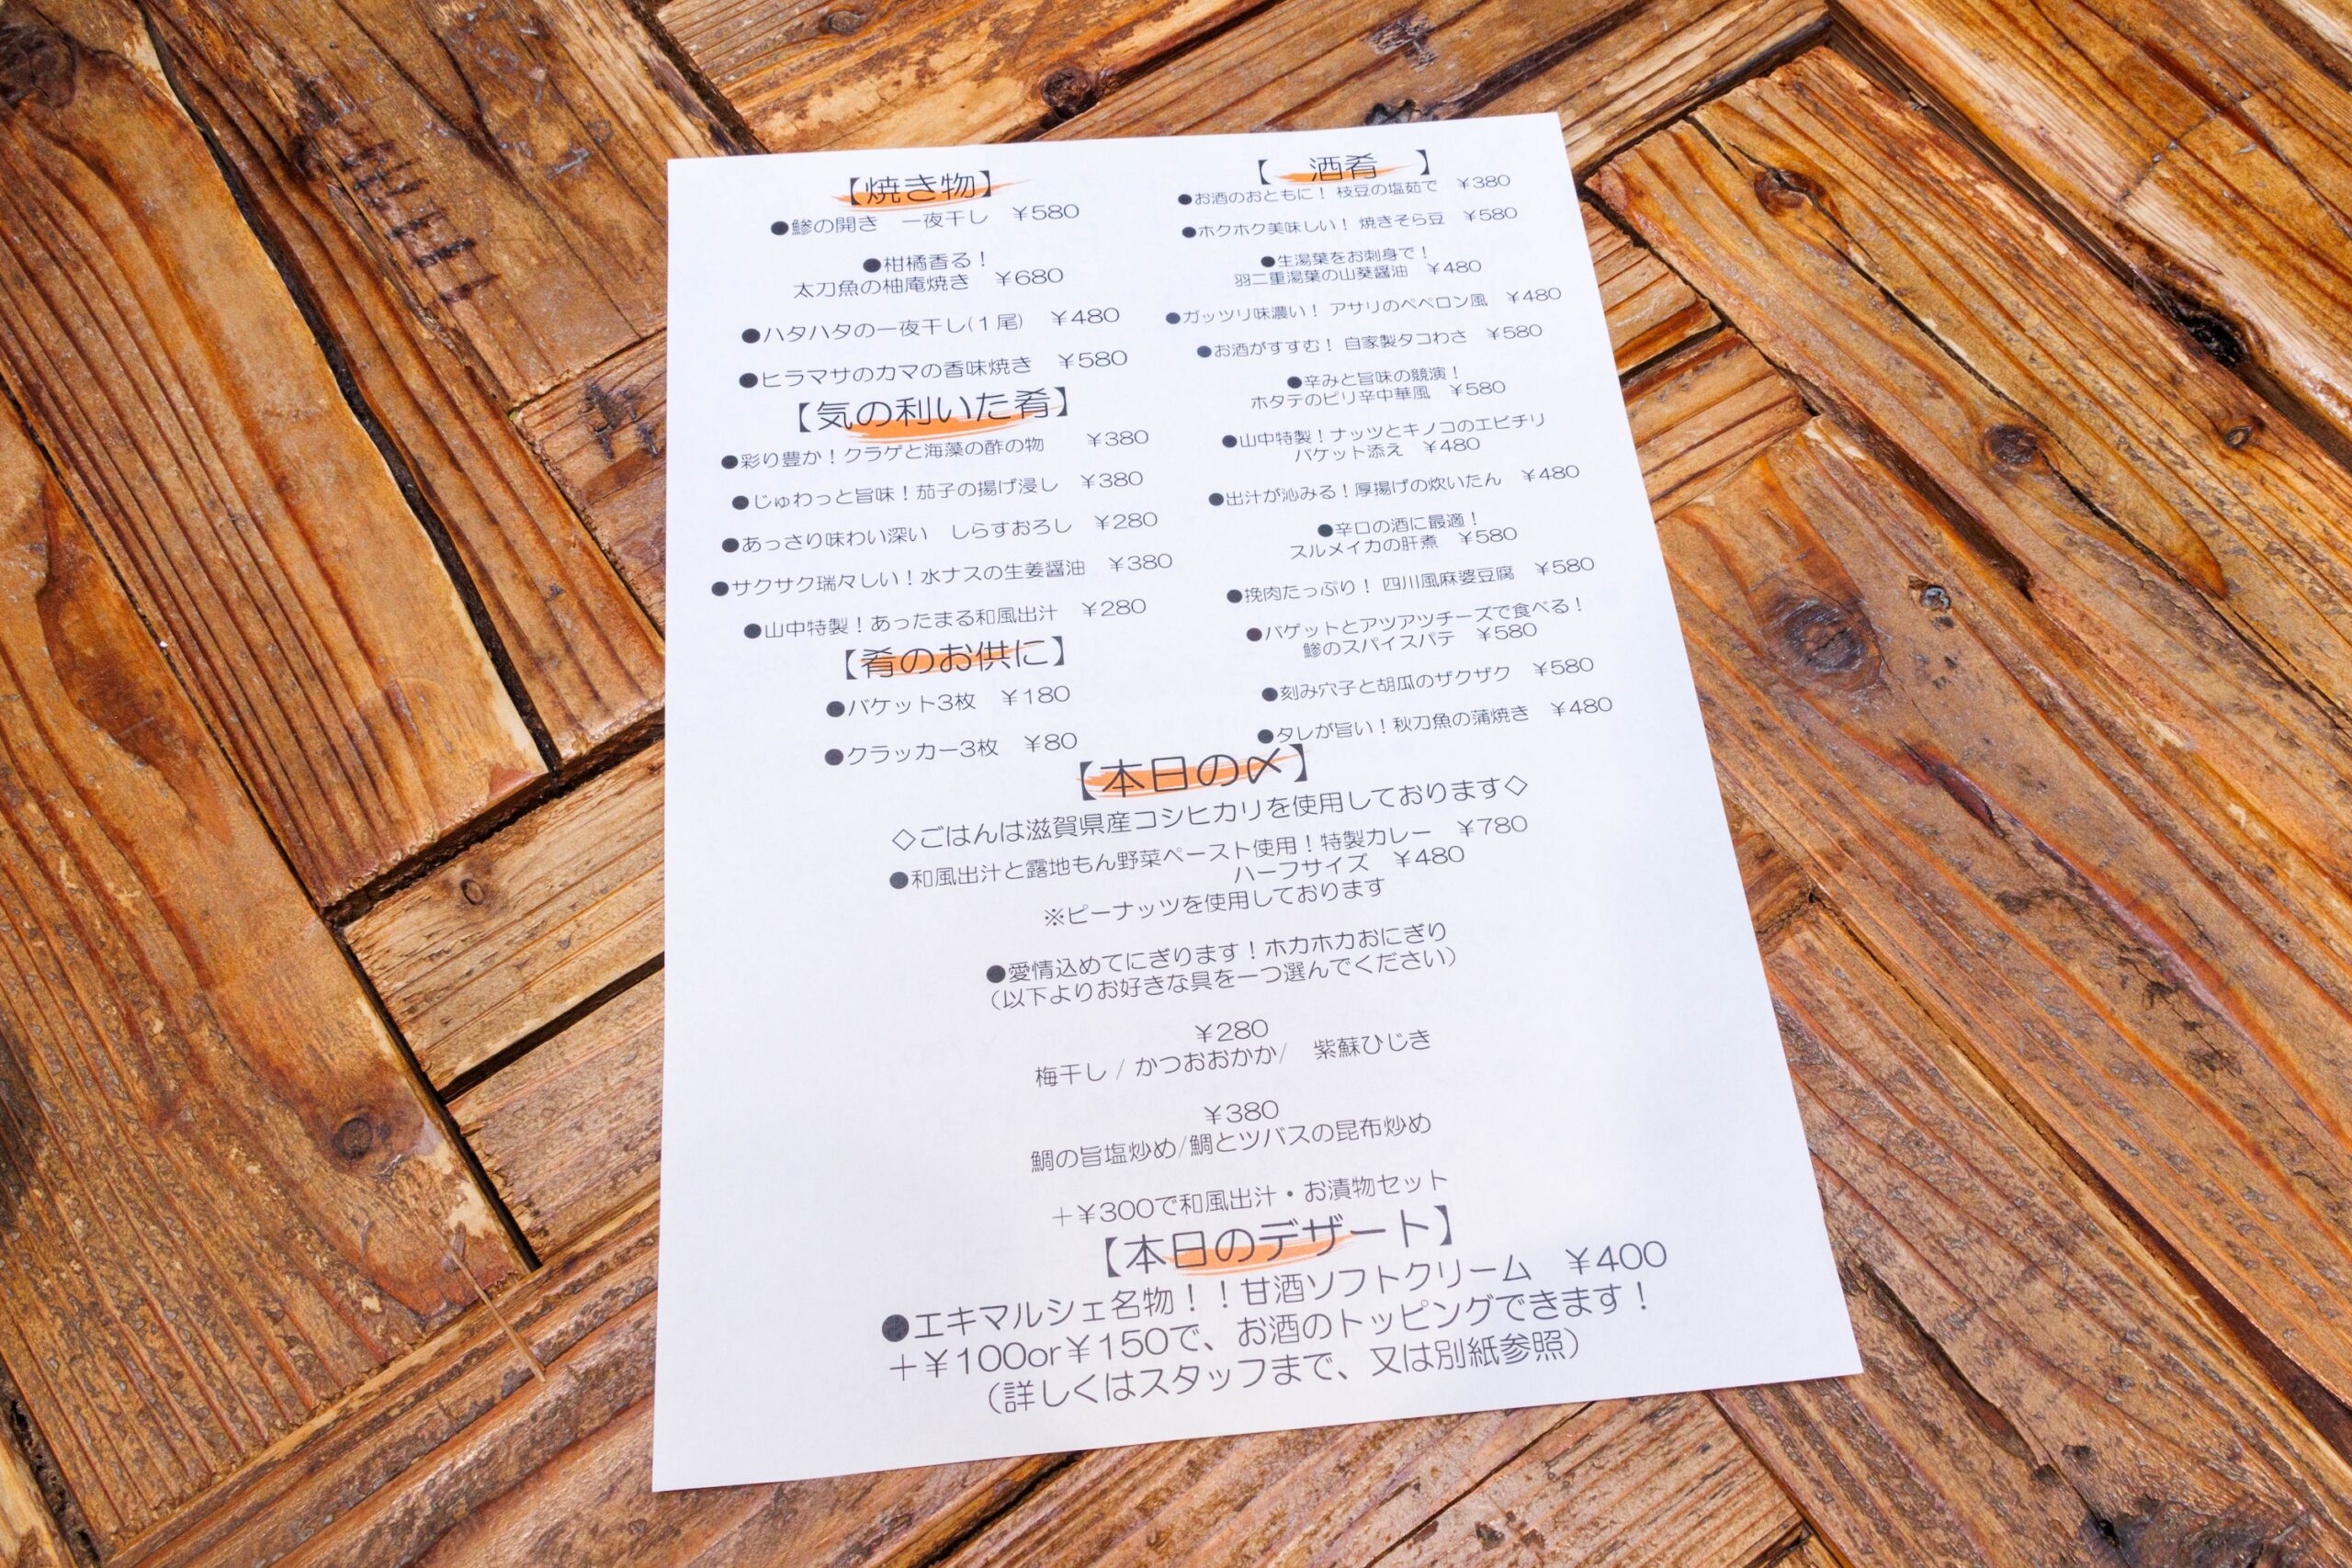 【焼き物】
●鯵の開き　一夜干し　¥580
●柑橘香る！
太刀魚の柚庵焼き　¥680
●ハタハタの一夜干し(１尾)　¥480
●ヒラマサのカマの香味焼き　¥580
【気の利いた肴】
●彩り豊か！クラゲと海藻の酢の物　¥380
●じゅわっと旨味！茄子の揚げ浸し　¥380
●あっさり味わい深い　しらすおろし　¥280
●サクサク瑞々しい！水ナスの生姜醤油　¥380
●山中特製！あったまる和風出汁　¥280
【肴のお供に】
●バケット3枚　¥180
●クラッカー3枚　¥80
【　酒肴　】
●お酒のおともに！ 枝豆の塩茹で　¥380
●ホクホク美味しい！ 焼きそら豆　¥580
●生湯葉をお刺身で！
羽二重湯葉の山葵醤油　¥480
●ガッツリ味濃い！ アサリのペペロン風　¥480
●お酒がすすむ！ 自家製タコわさ　¥580
●辛みと旨味の競演！
ホタテのピリ辛中華風　¥580
●山中特製！ナッツとキノコのエビチリ
バケット添え　¥480
●出汁が沁みる！厚揚げの炊いたん　¥480
●辛口の酒に最適！
スルメイカの肝煮　¥580
●挽肉たっぷり！ 四川風麻婆豆腐　¥580
●バゲットとアツアツチーズで食べる！
鯵のスパイスパテ　¥580
●刻み穴子と胡瓜のザクザク　¥580
●タレが旨い！秋刀魚の蒲焼き　¥480
【本日の〆】
◇ごはんは滋賀県産コシヒカリを使用しております◇
●和風出汁と露地もん野菜ペースト使用！特製カレー　¥780
ハーフサイズ　¥480
※ピーナッツを使用しております
●愛情込めてにぎります！ホカホカおにぎり
（以下よりお好きな具を一つ選んでください）
¥280
梅干し / かつおおかか/　紫蘇ひじき
¥380
鯛の旨塩炒め/鯛とツバスの昆布炒め
＋¥300で和風出汁・お漬物セット
【本日のデザート】
●エキマルシェ名物！！甘酒ソフトクリーム　¥400
＋¥100or¥150で、お酒のトッピングできます！
（詳しくはスタッフまで、又は別紙参照）